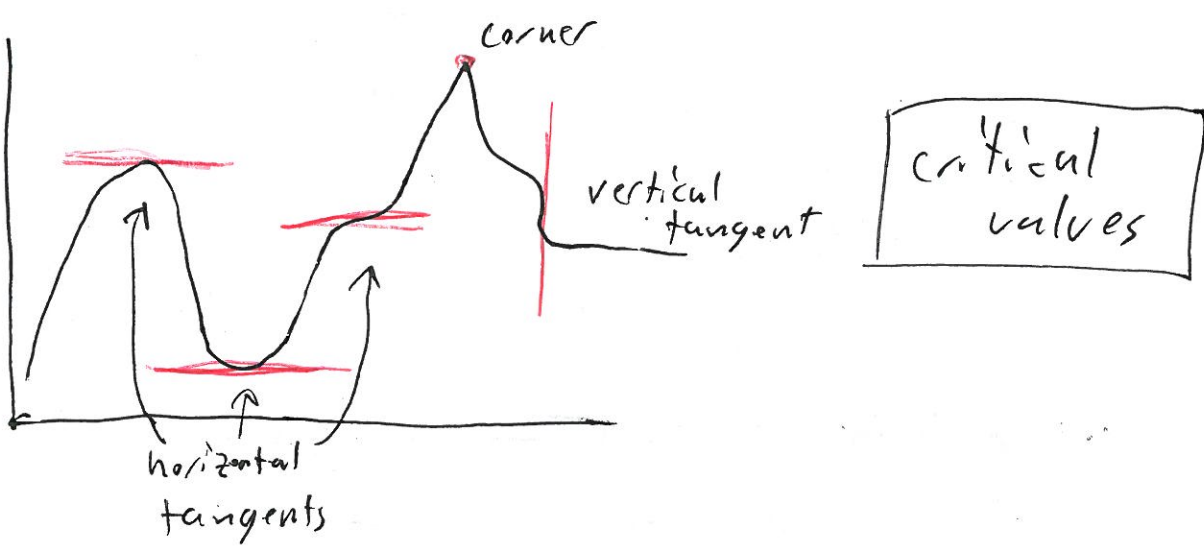 corner
vertical
tangent
critical
values
horizontal
tangents